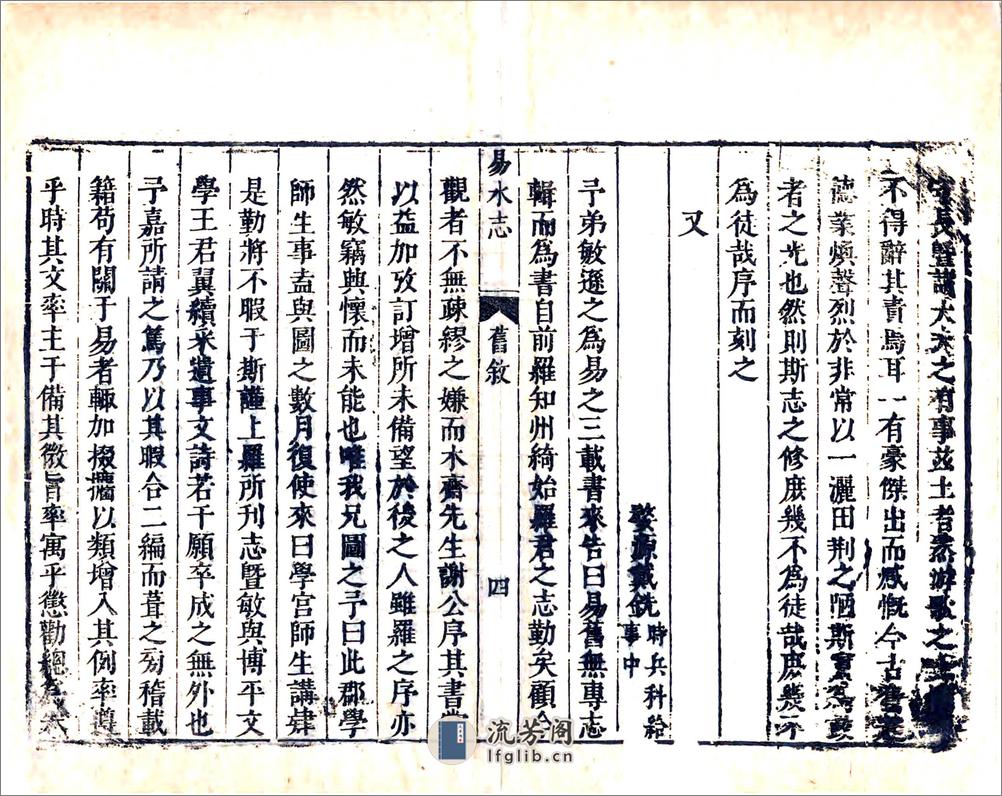 守長暨諸大夫之有事茲土者悲游歌之士
不得辭其責焉耳一有豪傑出而感慨今古奮
德業煥聲烈於非常以一灑田荆之陋斯
者之光也然則斯志之修庶幾不為徒哉庶幾不
為徒哉序而刻之
又
婺源戴銑時兵科給事中
予弟敏遜之為易之三載書來告曰易舊無專志
輯而為書自前羅知州綺始羅君之志勤矣顧
觀者不無疎繆之嫌而木齋先生謝公序其書
以益加攷訂增所未備望於後之人雖羅之序亦
然敏竊興懷而未能也唯我兄圖之予曰此郡學
師生事盍與圖之數月復使來曰學宮師生講肄
是勤將不暇于斯謹上羅所刊志暨敏與博平文
學王君翼續采遺事文詩若干願卒成之無外也
予嘉所請之篤乃以其暇合二編而葺之旁稽載
籍苟有關于易者輒加掇攟以類增入其例率遵
乎時其文率主于備其微旨率寓乎懲勸總
易水志
舊敘
四
流芳阁
lfglib.cn